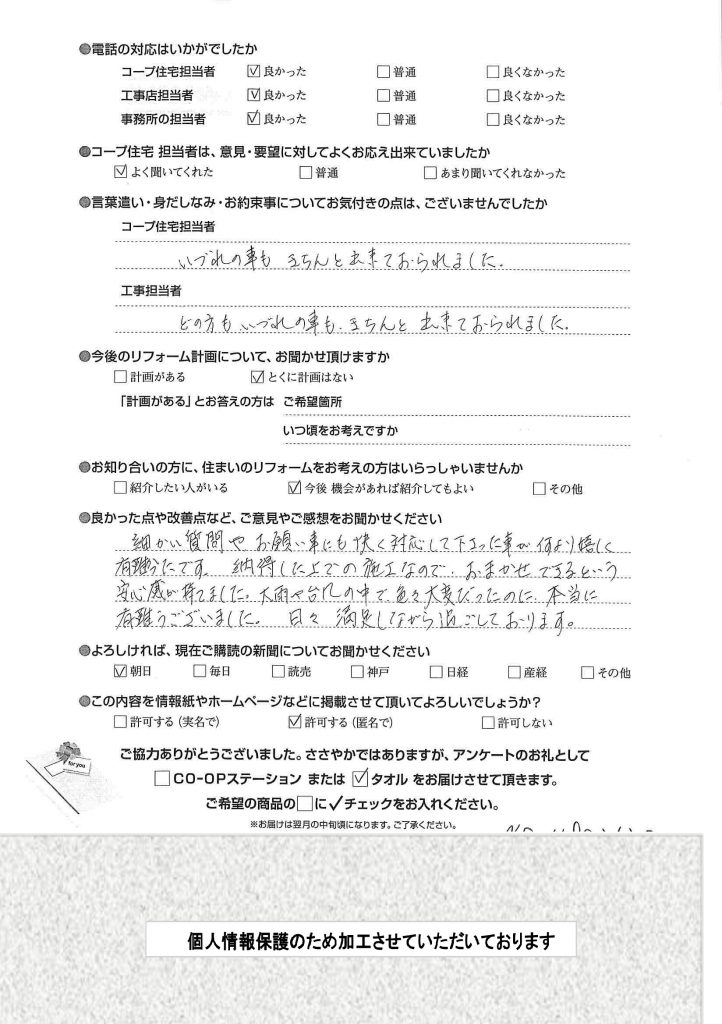 ●電話の対応はいかがでしたか
コープ住宅担当者 ☑良かった □普通 □良くなかった
工事店担当者 ☑良かった □普通 □良くなかった
事務所の担当者 ☑良かった □普通 □良くなかった
●コープ住宅 担当者は、意見・要望に対してよくお応え出来ていましたか
☑よく聞いてくれた □普通 □あまり聞いてくれなかった
●言葉遣い・身だしなみ・お約束事についてお気付きの点は、ございませんでしたか
コープ住宅担当者
いづれの事も きちんと出来ておられました。
工事担当者
どの方も いづれの事も、きちんと 出来ておられました。
●今後のリフォーム計画について、お聞かせ頂けますか
□計画がある ☑とくに計画はない
「計画がある」とお答えの方は ご希望箇所
いつ頃をお考えですか
●お知り合いの方に、住まいのリフォームをお考えの方はいらっしゃいませんか
□紹介したい人がいる ☑今後 機会があれば紹介してもよい □その他
●良かった点や改善点など、ご意見やご感想をお聞かせください
細かい質問や お願い事にも 快く対応して下さった事が何より嬉しく
有難かったです。 納得した上での施工なので、おまかせできるという
安心感が持てました。大雨や台風の中で、色々大変だったのに、本当に
有難うございました。 日々 満足しながら過ごしております。
●よろしければ、現在ご購読の新聞についてお聞かせください
☑朝日 □毎日 □読売 □神戸 □日経 □産経 □その他
●この内容を情報紙やホームページなどに掲載させて頂いてよろしいでしょうか?
□許可する(実名で) ☑許可する(匿名で) □許可しない
for you
ご協力ありがとうございました。ささやかではありますが、アンケートのお礼として
□CO-OPステーション または ☑タオル をお届けさせて頂きます。
ご希望の商品の□に✓チェックをお入れください。
※お届けは翌月の中旬頃になります。ご了承ください。
個人情報保護のため加工させていただいております